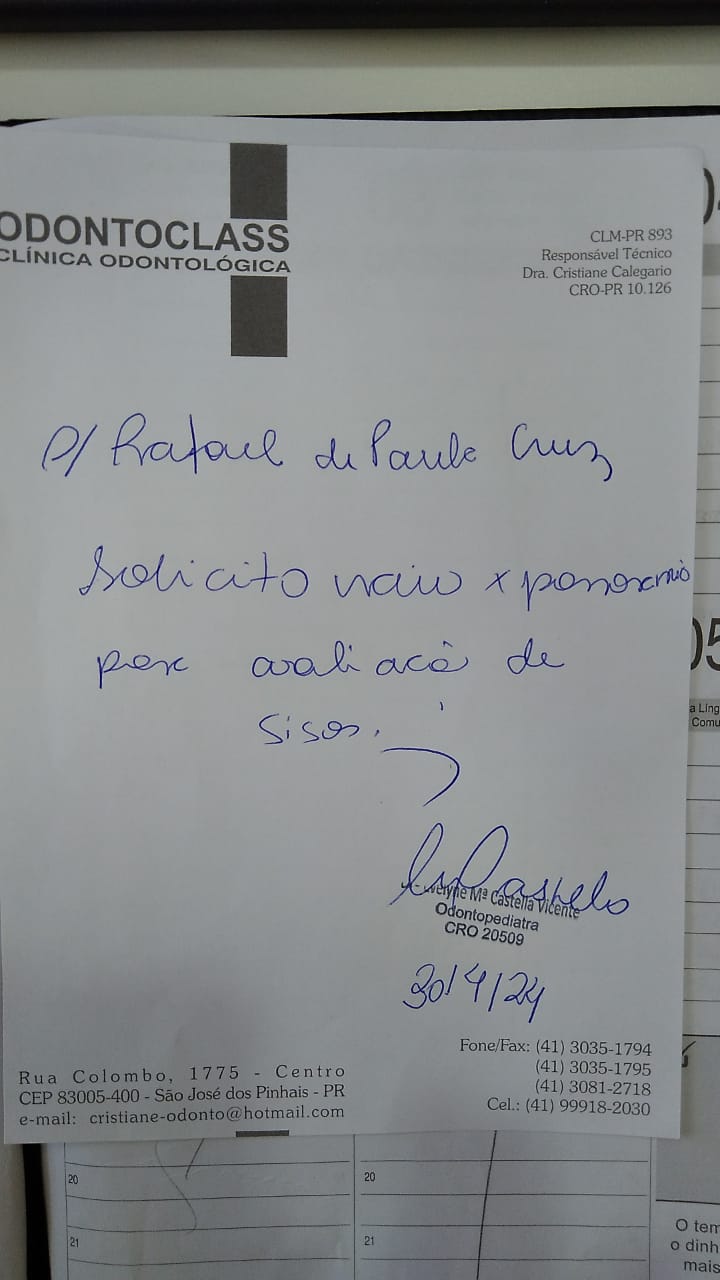 ODONTOCLASS
CLÍNICA ODONTOLÓGICA
CLM-PR 893
Responsável Técnico
Dra. Cristiane Calegario
CRO-PR 10.126
P/ Rafael de Paula Cruz
Solicito raio x panoramio
para avaliacã de
sisos.
velyne Mª Castella Vicente
Odontopediatra
CRO 20509
30/4/24
Rua Colombo, 1775 - Centro
CEP 83005-400 - São José dos Pinhais - PR
e-mail: cristiane-odonto@hotmail.com
Fone/Fax: (41) 3035-1794
(41) 3035-1795
(41) 3081-2718
Cel.: (41) 99918-2030
05
a Líng
Comu
20
20
21
21
O tem
o dinh
mais